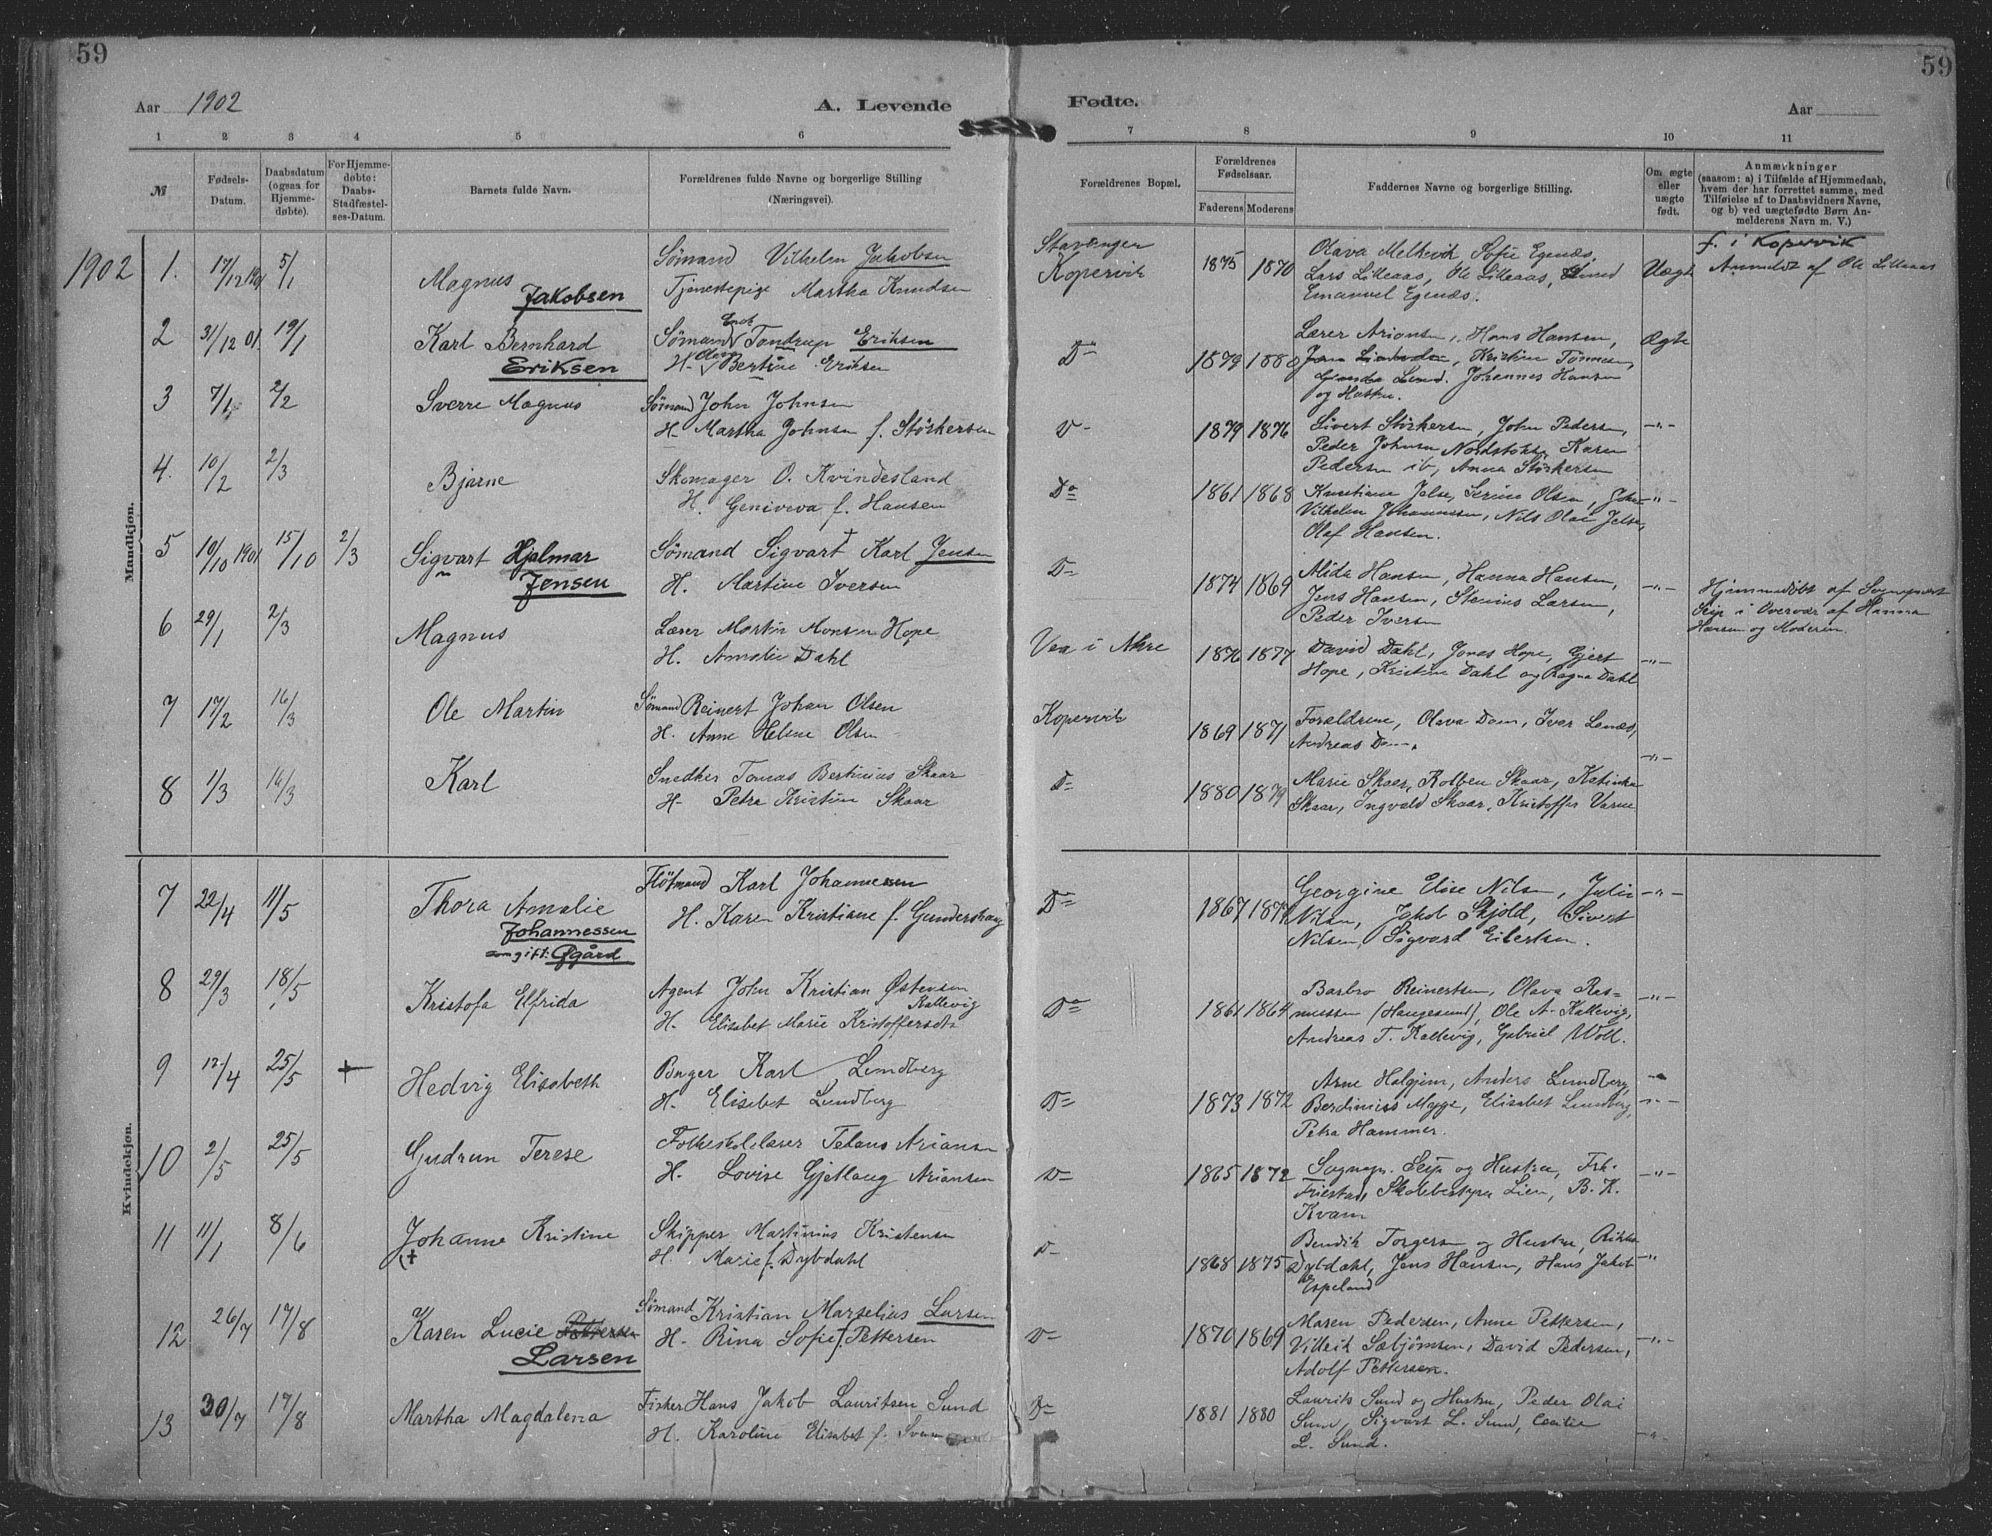 59
59
Aar 1902
A. Levende
Fødte.
Aar
1 2 3 4 5 6 7 8 9 10 11
№
Fødsels-
Datum.
Daabsdatum
(ogsaa for
Hjemme-
døbte).
For Hjemme-
døbte:
Daabs-
Stadfæstel-
ses-Datum.
Barnets fulde Navn.
Forældrenes fulde Navne og borgerlige Stilling
(Næringsvei).
Forældrenes Bopæl.
Forældrenes
Fødselsaar.
Faderens Moderens
Faddernes Navne og borgerlige Stilling.
Om ægte
eller
uægte
født.
Anmærkninger
(saasom: a) i Tilfælde af Hjemmedaab,
hvem der har forrettet samme, med
Tilføielse af to Daabsvidners Navne,
og b) ved uægtefødte Børn An-
melderens Navn m. V.)
Mandkjøn.
1902 1. 17/12 1901 5/1
Magnus
Jakobsen
Sømand Vilhelm Jakobsen
Tjenestepige Martha Knudsen
Stavanger
Kopervik
1875 1870
Olava Melkevik, Sofie Egenæs,
Lars Lilleaas, Ole Lilleaas,
Emanuel Egenæs.
Uægte
f. i Kopervik
Anmeldt af Ole Lilleaas
2 31/12 01. 19/1
Karl Bernhard
Eriksen
Sømand Tandrup Eriksen
H. Bertine Eriksen
Do
1879 1880
Lærer Ariansen, Hans Hansen,
Kristine Tønnesen,
Lund. Johannes Hansen
og Hustru.
Ægte
3 7/1 2/2
Sverre Magnus
Sømand John Johnsen
H. Martha Johnsen f. Størkersen
Do
1879 1876
Sivert Størkersen, John Pedersen,
Peder Johnsen Nordstokke, Karen
Pedersen ib, Anna Størkersen
-"-
4. 10/2 2/3
Bjarne
Skomager O. Kvindesland
H. Geniveva f. Hansen
Do
1861 1868
Kristiane Jelse, Serine Olsen, John
Vilhelm Johannessen, Nils Olai Jelse,
Olaf Hansen.
-"-
5 10/10 1901 15/10 2/3
Sigvart Hjalmar
Jensen
Sømand Sigvart Karl Jensen
H. Martine Iversen
Do
1874 1869
Alida Hansen, Hanna Hansen,
Jens Hansen, Stenius Larsen,
Peder Iversen
-"-
Hjemmedøbt af Sognepræst
Seip i Overvær af Hanna
Hansen og Moderen.
6 29/1 2/3
Magnus
Lærer Martin Monsen Hope
H. Amalie Dahl
Vea i Akre
1876 1877
David Dahl, Jonas Hope, Gjert
Hope, Kristine Dahl og Ragna Dahl
-"-
7 17/2 16/3
Ole Martin
Sømand Reinert Johan Olsen
H. Anne Helene Olsen
Kopervik
1869 1871
Forældrene, Olava Dam, Iver Lenæs,
Andreas Dam.
-"-
8 1/3 16/3
Karl
Snedker Tomas Bertinius Skaar
H. Petra Kristine Skaar
Do
1880 1879
Marie Skaar, Kolben Skaar, Katinka
Skaar, Ingvald Skaar, Kristoffer Varne
Kvindekjøn.
7 22/4 11/5
Thora Amalie
Johannessen
som gift: Øgård
Fløtmand Karl Johannessen
H. Karen Kristiane f. Gundershaug
Do
1867
Georgine Elise Nilsen, Julie
Nilsen, Jakob Skjold, Sivert
Nilsen, Sigvard Eilertsen.
-"-
8 29/3 18/5
Kristofa Elfrida
Agent John Kristian Østensen
Kallevig
H. Elisabet Marie Kristoffersdtr
Do
1861 1864
Barbro Reinertsen, Olava Ras-
mussen (Haugesund), Ole A. Kallevig,
Andreas T. Kallevig, Gabriel Woll.
-"-
9 12/4 25/5 +
Hedvig Elisabeth
Bager Karl Lundberg
H. Elisabet Lundberg
Do
1873 1872
Arne Halgjem, Anders Lundberg,
Berdinius Mygge, Elisabet Lundberg,
Petra Hammer.
-"-
10 2/5 25/5
Gudrun Terese
Folkeskolelærer Telans Ariansen
H. Lovise Gjetlaug Ariansen
Do
1865 1872
Sogнepr. Seip og Hustru, Frk.
Friestad, Skolebestyrer Lien, B. K.
Kvam
-"-
11 11/1 8/6
Johanne Kristine
(+
Skipper Martinius Kristensen
H. Marie f. Dybdahl
Do
1868 1875
Bendik Torgersen og Hustru, Rikka
Dybdahl, Jens Hansen, Hans Jakob
Espeland
-"-
12 26/7 17/8
Karen Lucie Pettersen
Larsen
Sømand Kristian Marselius Larsen
H. Rina Sofie f. Pettersen
Do
1870 1869
Maren Pedersen, Anne Pettersen,
Villrik Sæbjørnsen, David Pedersen,
Adolf Pettersen.
-"-
13 30/7 17/8
Martha Magdalena
Fisker Hans Jakob Lauritsen Sund
H. Karoline Elisabet f.
Do
1881 1880
Laurits Sund og Hustru, Peder Olai
Sund, Sigvart L. Sund, Cecilie
L. Sund.
-"-